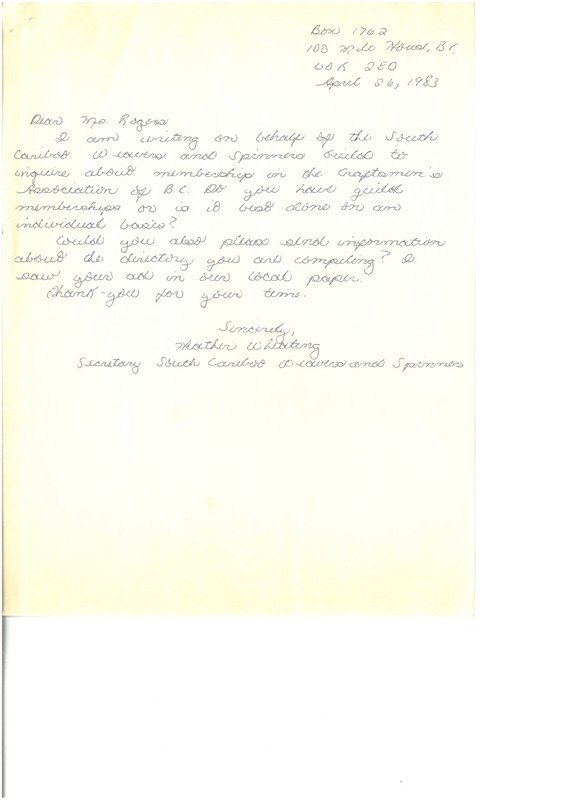 Box 1762
100 Mile House, B.C.
V0K 2E0
April 26, 1983
Dear Ms. Rogers
I am writing on behalf of the South
Cariboo Weavers and Spinners Guild to
inquire about membership in the Craftsmen's
Association of B.C. Do you have guild
memberships or is it best done on an
individual basis?
Would you also please send information
about the directory you are compiling? I
saw your ad in our local paper.
Thank-you for your time.
Sincerely,
Heather Whiting
Secretary South Cariboo Weavers and Spinners